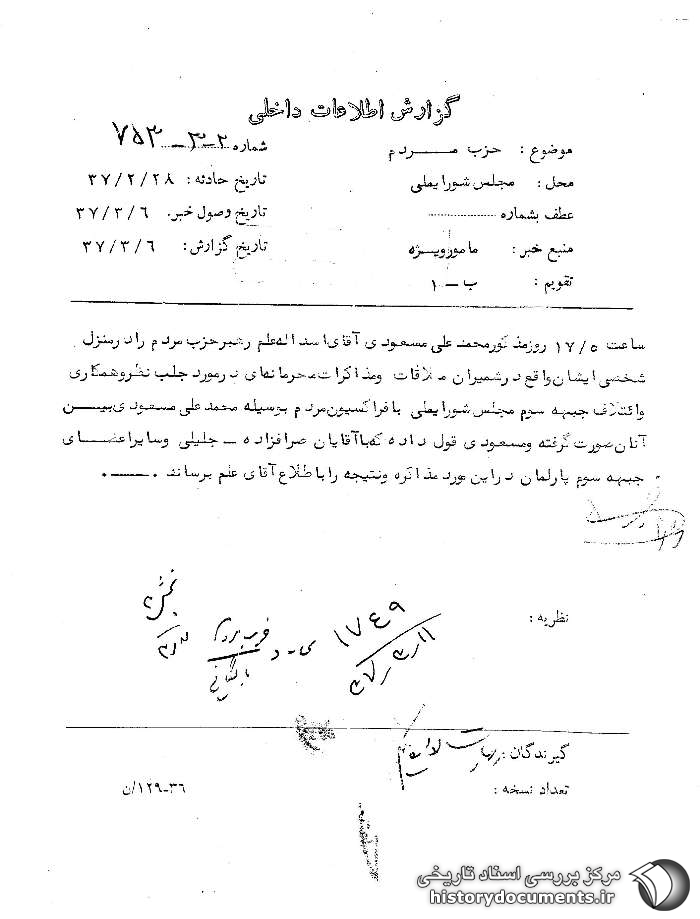 گزارش اطلاعات داخلی
موضوع : حزب مردم
شماره ۲-۳-۷۵۳
محل : مجلس شورایملی
تاریخ حادثه : ۳۷/۲/۲۸
عطف بشماره
تاریخ وصول خبر. ۳۷/۳/۶
منبع خبر : مامورویژه
تاریخ گزارش : ۳۷/۳/۶
تقویم : ب - ۱
ساعت ۱۷/۵ روزمذکورمحمدعلی مسعودی آقای اسداله علم رهبرحزب مردم رادرمنزل
شخصی ایشان واقع درشمیران ملاقات ومذاکرات محرمانه‌ای درمورد جلب نظروهمکاری
وائتلاف جبهه سوم مجلس شورایملی بافراکسیون مردم بوسیله محمدعلی مسعودی بیـن
آنان صورت گرفته ومسعودی قول داده که‌باآقایان صرافزاده - جلیلی وسایراعضـای
جبهه سوم پارلمان دراین مورد مذاکره ونتیجه راباطلاع آقای علم برساند .
نظریه :
۱۷۴۹
۳۷/۳/۱۱
ی - د
بایگانی
گیرندگان :
تعداد نسخه :
۳۶-۱۲۹/ن
مرکز بررسی اسناد تاریخی
historydocuments.ir